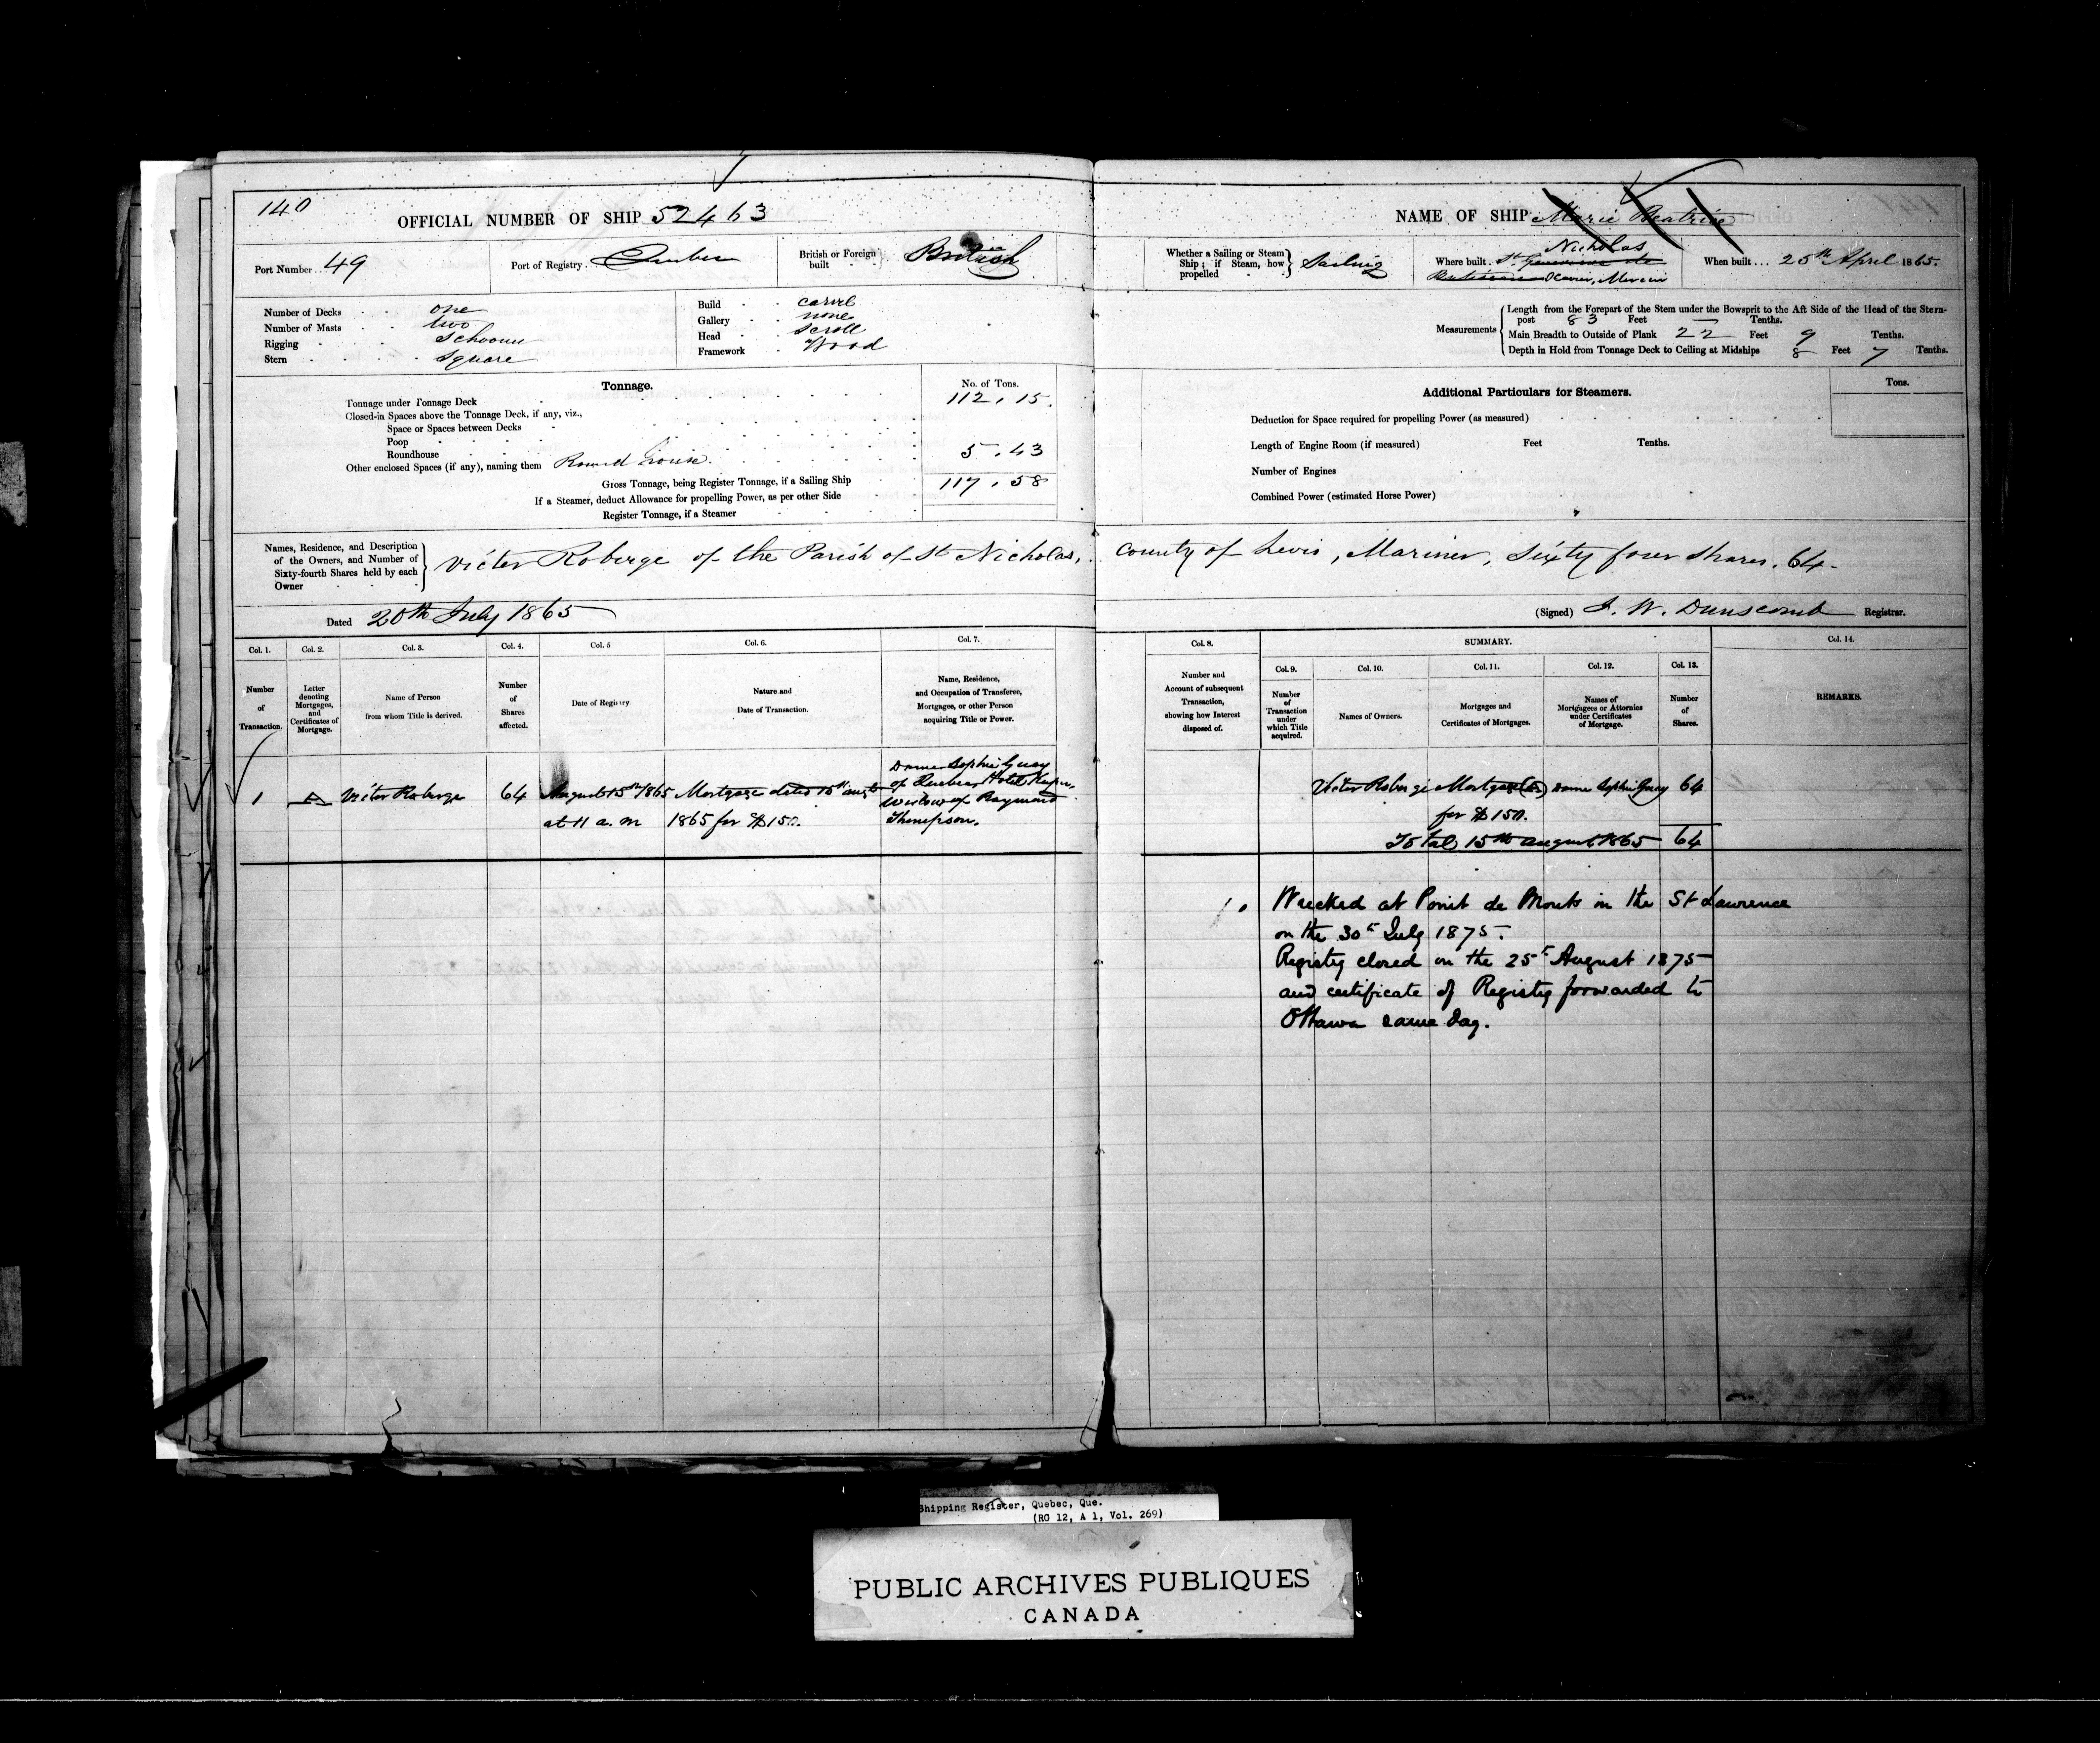 140
OFFICIAL NUMBER OF SHIP 52463
Port Number 49
Port of Registry Quebec
British or Foreign built British
Number of Decks one
Number of Masts two
Rigging Schooner
Stern Square
Build carvel
Gallery none
Head Scroll
Framework Wood
Tonnage.
No. of Tons.
Tonnage under Tonnage Deck 112.15
Closed-in Spaces above the Tonnage Deck, if any, viz.,
Space or Spaces between Decks
Poop
Roundhouse
Other enclosed Spaces (if any), naming them Round House 5.43
Gross Tonnage, being Register Tonnage, if a Sailing Ship 117.58
If a Steamer, deduct Allowance for propelling Power, as per other Side
Register Tonnage, if a Steamer
NAME OF SHIP Marie Beatrice
Whether a Sailing or Steam Ship; if Steam, how propelled Sailing
Where built St Nicholas
When built 25th April 1865.
Measurements
Length from the Forepart of the Stem under the Bowsprit to the Aft Side of the Head of the Stern-
post 83 Feet Tenths.
Main Breadth to Outside of Plank 22 Feet 9 Tenths.
Depth in Hold from Tonnage Deck to Ceiling at Midships 8 Feet 7 Tenths.
Additional Particulars for Steamers.
Tons.
Deduction for Space required for propelling Power (as measured)
Length of Engine Room (if measured) Feet Tenths.
Number of Engines
Combined Power (estimated Horse Power)
Names, Residence, and Description
of the Owners, and Number of
Sixty-fourth Shares held by each
Owner
Victor Roberge of the Parish of St Nicholas, County of Levis, Mariner, Sixty four Shares. 64
Dated 20th July 1865
(Signed) J. W. Dunscomb Registrar.
Col. 1. Col. 2. Col. 3. Col. 4. Col. 5 Col. 6. Col. 7.
Number of Transaction.
Letter denoting Mortgages, and Certificates of Mortgage.
Name of Person from whom Title is derived.
Number of Shares affected.
Date of Registry
Nature and Date of Transaction.
Name, Residence, and Occupation of Transferee, Mortgagee, or other Person acquiring Title or Power.
1 A Victor Roberge 64 August 15th 1865 Mortgage dated 15th
at 11 a.m 1865 for $150.
Dame Sophie Guay
of Quebec Hotel Keeper,
Widow of Raymond
Thompson.
Col. 8. SUMMARY. Col. 14.
Col. 9. Col. 10. Col. 11. Col. 12. Col. 13.
Number and Account of subsequent Transaction, showing how Interest disposed of.
Number of Transaction under which Title acquired.
Names of Owners.
Mortgages and Certificates of Mortgages.
Names of Mortgagees or Attornies under Certificates of Mortgage.
Number of Shares.
REMARKS.
Victor Roberge Mortgage (A) Dame Sophie Guay 64
for $150.
Total 15th August 1865 64
Wrecked at Point de Monts in the St Lawrence
on the 30th July 1875.
Registry closed on the 25th August 1875
and certificate of Registry forwarded to
Ottawa same day.
Shipping Register, Quebec, Que.
(RG 12, A 1, Vol. 269)
PUBLIC ARCHIVES PUBLIQUES
CANADA